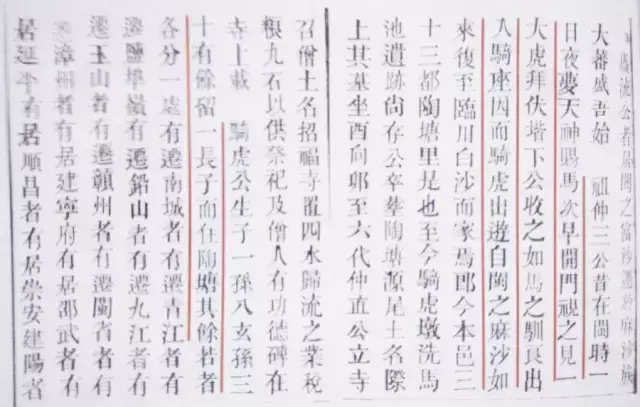 流公者居閩之富沙遷於麻沙
大蕃盛吾始 祖仲三公昔在閩時一
日夜夢天神賜馬次早開門視之見一
大虎拜伏堦下公收之如馬之馴良出
入騎座因而騎虎出遊自閩之麻沙如
來後至臨川白沙而家焉即今本邑三
十三都陶塘里是也至今騎虎墩洗馬
池遺跡尚存公卒塟陶塘源尾土名際
上其墓坐酉向卯至六代仲直公立寺
召僧土名招福寺置四水歸流之業稅
粮九石以供祭祀及僧人有功德碑在
寺上載 騎虎公生子一孫八玄孫三
十有餘留一長子而在陶塘其餘若者
各分一處有遷南城者有遷吉江者有
遷鹽埠嶺有遷鉛山者有遷九江者有
遷玉山者有遷贛州者有遷閩省者有
遷漳州者有居建寧府有居邵武者有
居延平有居順昌者有居崇安建陽者